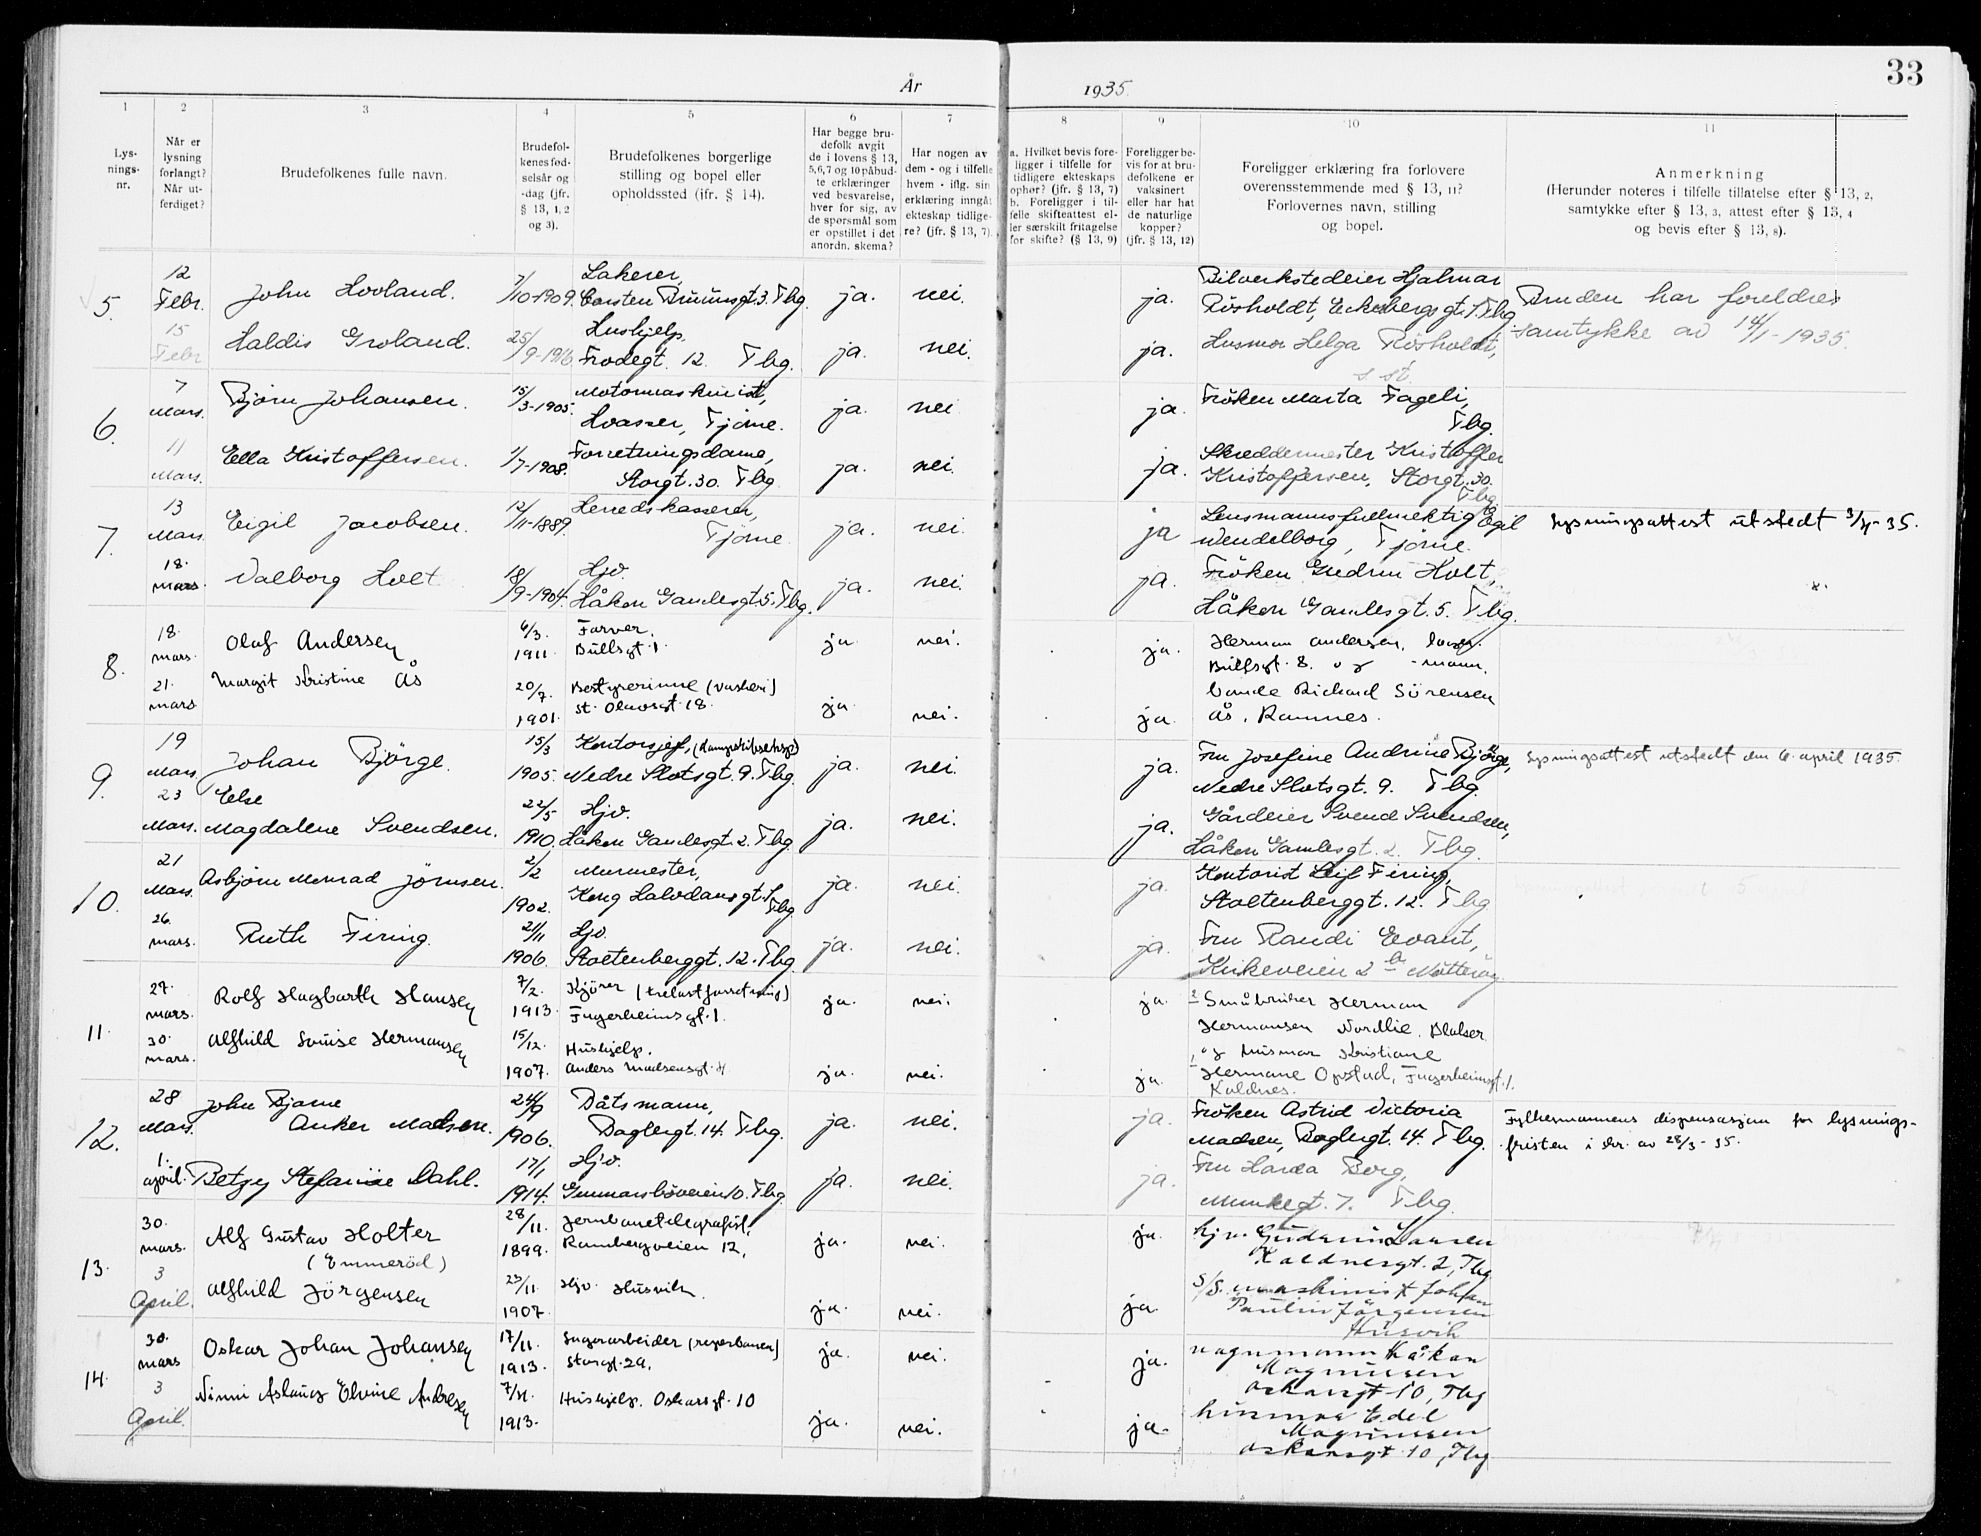 År 1935.
33
1 2 3 4 5 6 7 8 9 10 11
Lys-
nings-
nr.
Når er
lysning
forlangt?
Når ut-
ferdiget?
Brudefolkenes fulle navn.
Brudefol-
kenes fød-
selsår og
-dag (jfr.
§ 13, 1, 2
og 3).
Brudefolkenes borgerlige
stilling og bopel eller
opholdssted (ifr. § 14).
Har begge bru-
defolk avgit
de i lovens § 13,
5,6,7 og 10 påbud-
te erklæringer
ved besvarelse,
hver for sig, av
de spørsmål som
er opstillet i det
anordn. skema?
Har nogen av
dem - og i tilfelle
hvem - iflg. sin
erklæring inngåt
ekteskap tidlige-
re? (jfr. § 13, 7).
a. Hvilket bevis fore-
ligger i tilfelle for
tidligere ekteskaps
ophør? (jfr. § 13, 7)
b. Foreligger i til-
felle skifteattest el-
ler særskilt fritagelse
for skifte? (§ 13, 9)
Foreligger be-
vis for at bru-
defolkene er
vaksinert
eller har hat
de naturlige
kopper?
(jfr. § 13, 12)
Foreligger erklæring fra forlovere
overensstemmende med § 13, 11?
Forlovernes navn, stilling
og bopel.
Anmerkning
(Herunder noteres i tilfelle tillatelse efter § 13, 2,
samtykke efter § 13, 3, attest efter § 13, 4
og bevis efter § 13, 8).
5. 12 Febr. John Hovland. 7/10-1909. Lakerer, Carsten Bruunsgt. 3. Tbg. ja. nei. ja. Bilverkstedeier Hjalmar
Rösholdt, Eckebergsgt. 1. Tbg. Bruden har foreldres
15 Febr Haldis Groland. 25/9-1916 Hushjelp, Frodegt. 12. Tbg. ja. nei. ja. Husmor Helga Rösholdt, s. st. samtykke av 14/1-1935.
6. 7 Mars. Bjørn Johansen. 15/3-1905. Motormaskinist, Hvasser, Tjøme. ja. nei ja. Frøken Marta Fageli, Tbg.
11 Mars. Ella Kristoffersen. 1/7-1908. Forretningsdame, Storgt. 30. Tbg ja. nei. ja. Skreddermester Kristoffer
Kristoffersen, Storgt. 30. Tbg
7. 13 Mars. Eigil Jacobsen. 12/11-1889. Herredskasserer, Tjøme ja. nei. ja Lensmannsfullmektig Egil
Wendelborg, Tjøme. Lysningsattest utstedt 3/4-35.
18. mars. Valborg Holt 18/9-1904. Hjv. Håkon Gamlesgt. 5. Tbg. ja. nei. ja. Frøken Gudrun Holt,
Håkon Gamlesgt. 5. Tbg. "
8. 18. mars. Olaf Andersen 6/3. 1911 Farver. Bullsgt. 1. ja nei. ja. Herman Andersen,
Bullsgt. 8. og -mann.
21. mars Margit Kristine Ås 20/7. 1901. Bestyrerinne (vaskeri) St. Olavsgt. 18. ja nei. ja. Richard Sörensen
Ås, Ramnes.
9. 19 Mars Johan Björge. 15/3 1905. Kontorsjef, (dampskibseksp) Nedre Slotsgt. 9. Tbg. ja. nei. ja. Fru Josefine Andrine Björge,
Nedre Slotsgt. 9. Tbg. Lysningsattest utstedt den 6. april 1935.
23 Mars. Else Magdalene Svendsen. 22/5 1910. Hjv. Håkon Gamlesgt. 2. Tbg ja. nei. ja. Gårdeier Svend Svendsen,
Håkon Gamlesgt. 2. Tbg.
10. 21 Mars. Asbjørn Monrad Jörnsen. 2/2 1902. Murmester, Kong Halvdansgt. 1. Tbg ja. nei. ja. Kontorist Leif Firing,
Stoltenberggt. 12. Tbg
26. mars. Ruth Firing. 21/11 1906. Hjv. Stoltenberggt. 12. Tbg. ja. nei. ja. Fru Randi Evant,
Kirkeveien 2 b Nötteröy
11. 27. mars. Rolf Hagbarth Hansen 7/2. 1913. Kjörer (trelastforretning) Fugerheimsgt. 1. ja nei. ja. Småbruker Herman
Hermansen Nordlie.
30. mars. Alfhild Louise Hermansen 15/12. 1907. Hushjelp. Anders Madsensgt. 4 ja. nei. ja. og husmor Kristiane
Hermane Opstad, Fugerheimsgt. 1.
Kaldnes.
12. 28 Mars. John Bjarne Anker Madsen. 24/9 1906. Båtsmann, Baglergt. 14. Tbg. ja. nei. ja. Frøken Astrid Victoria
Madsen, Baglergt. 14. Tbg. Fylkesmannens dispensasjon for lysnings-
fristen i br. av 28/3-35.
1. april. Betzy Stefanie Dahl. 17/1 1914. Hjv. Gunnarsböveien 10. Tbg. ja. nei. ja. Fru Harda Borg,
Munkegt. 7. Tbg.
13. 30. mars. Alf Gustav Holter (Emmeröd) 28/11. 1899. Jernbanetelegrafist, Rambergveien 12, ja. nei. ja. hjv. Gudrun Larsen
Kaldnesgt. 2, Tbg
3 April. Alfhild Jörgensen 23/11. 1907. Hjv. Husvik. ja. nei. ja. S/S. maskinist Johan
Paulin Jörgensen
Husvik
14. 30. mars Oskar Johan Johansen 17/11. 1913. (reperbanen) Storgt. 29. ja. nei. ja. vognmann Håkon
Magnussen
Oskarsgt 10, Tbg
3 April. Ninni Aslaug Elvine Andresen 1913. Hushjelp. Oskarsgt. 10 ja. nei. ja. husmor Edel
Magnussen
Oskarsgt 10, Tbg